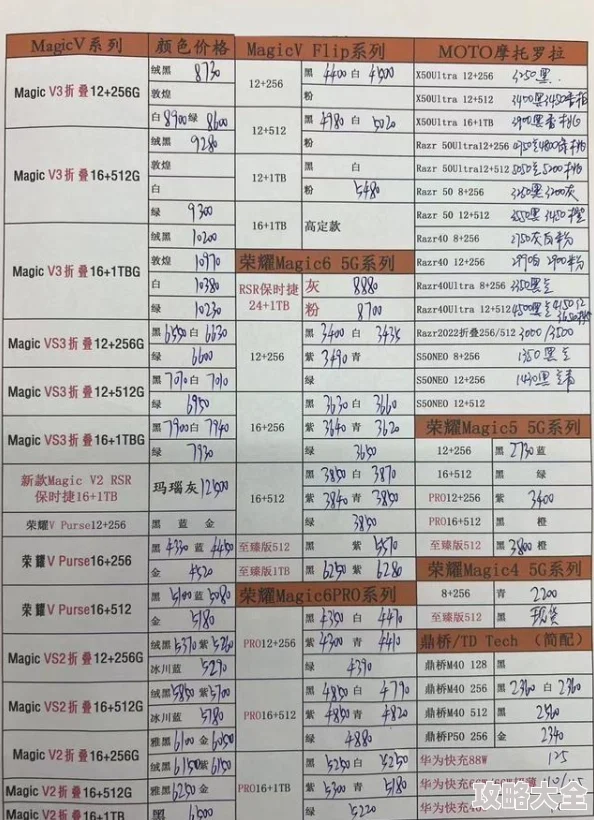 MagicV系列 颜色价格
Magic V3折叠12+256G
绒黑 8730
敦煌
白 8900 绿 8600
Magic V3折叠16+512G
绒黑 9280
敦煌
白
绿 9300
Magic V3折叠16+1TBG
绒黑 10200
敦煌 10970
白 10380
绿 10230
Magic VS3折叠12+256G
黑 6550 白 6630
绿 6600
Magic VS3折叠12+512G
黑 7010 白 7010
绿 6950
Magic VS3折叠16+1TBG
黑 7900 白 7940
绿 7930
新款Magic V2 RSR
保时捷16+1TB
玛瑙灰 12500
荣耀V Purse12+256 黑 蓝 金
荣耀V Purse16+256
黑 4330 蓝 4450
金 4520
荣耀V Purse16+512
黑 5100 蓝 5080
金 5180
Magic VS2折叠12+256G
绒黑 5370 紫 5260
冰川蓝 5290
Magic VS2折叠16+512G
绒黑 5850 紫 5700
冰川蓝 5780
Magic V2折叠16+256G
雅黑 6100 金 6050
绒黑 6150 紫 6150
Magic V2折叠16+512G 雅黑 6250 金
Magic V2折叠16+1TB 黑 6500
MagicV Flip系列
12+256
黑 4400 白 4500
粉
12+512
黑 4980 白 5020
12+1TB
黑 白
粉 5480
16+1TB 高定款
荣耀Magic6 5G系列
RSR保时捷
24+1TB
灰 8880
粉 8700
12+256
黑 3400 白 3435
紫 3490 青
绿
16+256
黑 3630 白 3660
紫 3640 青 3620
绿 3650
16+512
黑 3850 白 3870
紫 3840 青 3850
绿 3850
至臻版512 黑 紫 5570
至臻版1TB 黑 6250 紫 6280
荣耀Magic6PRO系列
PRO12+256
黑 4350 白 4470
紫 4300 青 4410
绿 4390
PRO16+512
黑 4850 白 4790
紫 4850 青 4820
绿 4880
PRO16+1TB
黑 5250 白 5250
紫 5300 青 5180
绿 5220
MOTO摩托罗拉
X50Ultra 12+256 3250黑
X50Ultra 12+512 3400黑3450
X50Ultra 16+1TB
Razr 50Ultra12+256
Razr 50Ultra12+512
Razr 50 8+256 3200灰
Razr 50 12+512 3450
Razr40 8+256 2750灰
Razr40 12+256 2900粉
Razr40Ultra 8+256 3350黑
Razr40Ultra 12+512 4500黑
Razr2022折叠256/512 3000/3500
S50NEO 8+256 1350黑
S50NEO 12+256 1430黑
S50NEO 12+512
荣耀Magic5 5G系列
12+256 黑 2730 蓝
16+512 黑 绿
PRO12+256 紫 3400
PRO16+512 黑 橙
至臻版512 黑 3800 橙
荣耀Magic4 5G系列
8+256 青 2200
至臻版512 黑 现货
鼎桥/TD Tech （简配）
鼎桥M40 128 黑
鼎桥M40 256 黑 2360 白 2360
鼎桥M40 512 黑 2560
鼎桥P50 256 金 2340
华为快充88W 125
华为快充
华为快充
攻略大全